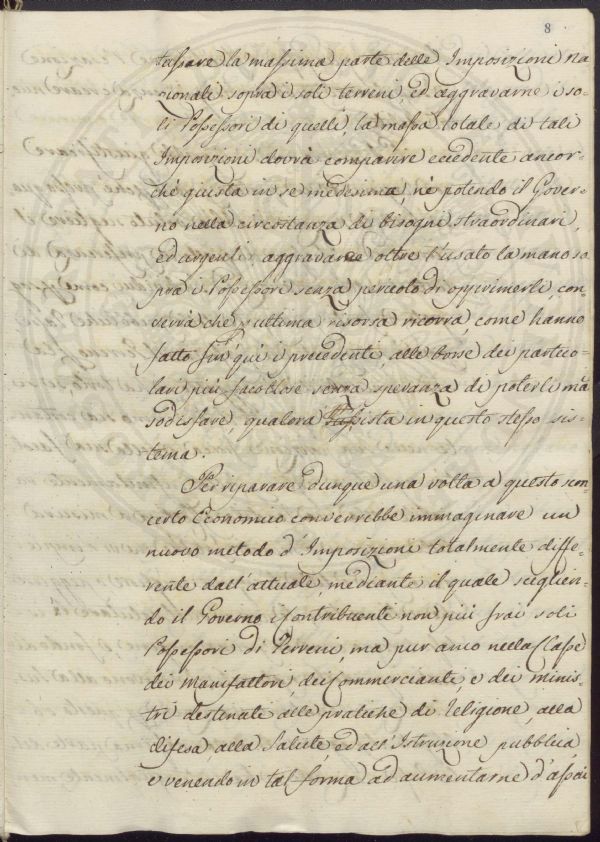 8
tassare la massima parte delle Imposizioni na
zionali sopra i soli terreni, ed aggravarne i so-
li Possessori di quelli, la massa totale di tali
Imposizioni dovrà comparire eccedente ancor-
chè questa in se medesima, nè potendo il Gover-
no nella circostanza di bisogni straordinari,
ed urgenti, aggravare oltre l'usato la mano so
pra i Possessori senza pericolo di opprimerli, con
verrà che p ultima risorsa ricorra, come hanno
fatto fin qui i precedenti, alle borse dei partico-
lari più facoltose senza speranza di poterli mai
sodisfare, qualora sista in questo stesso sis-
tema.
Per riparare dunque una volta a questo scon
certo Economico converrebbe immaginare un
nuovo metodo d'Imposizioni totalmente diffe-
rente dall'attuale, mediante il quale sceglien-
do il Governo i Contribuenti non più frai soli
Possessori di Terreni, ma pur anco nella Classe
dei Manifattori, dei Commercianti, e dei minis-
tri destinati alle pratiche di Religione, alla
difesa alla Salute, ed all'Istruzione pubblica
e venendo in tal forma ad aumentarne d'assai